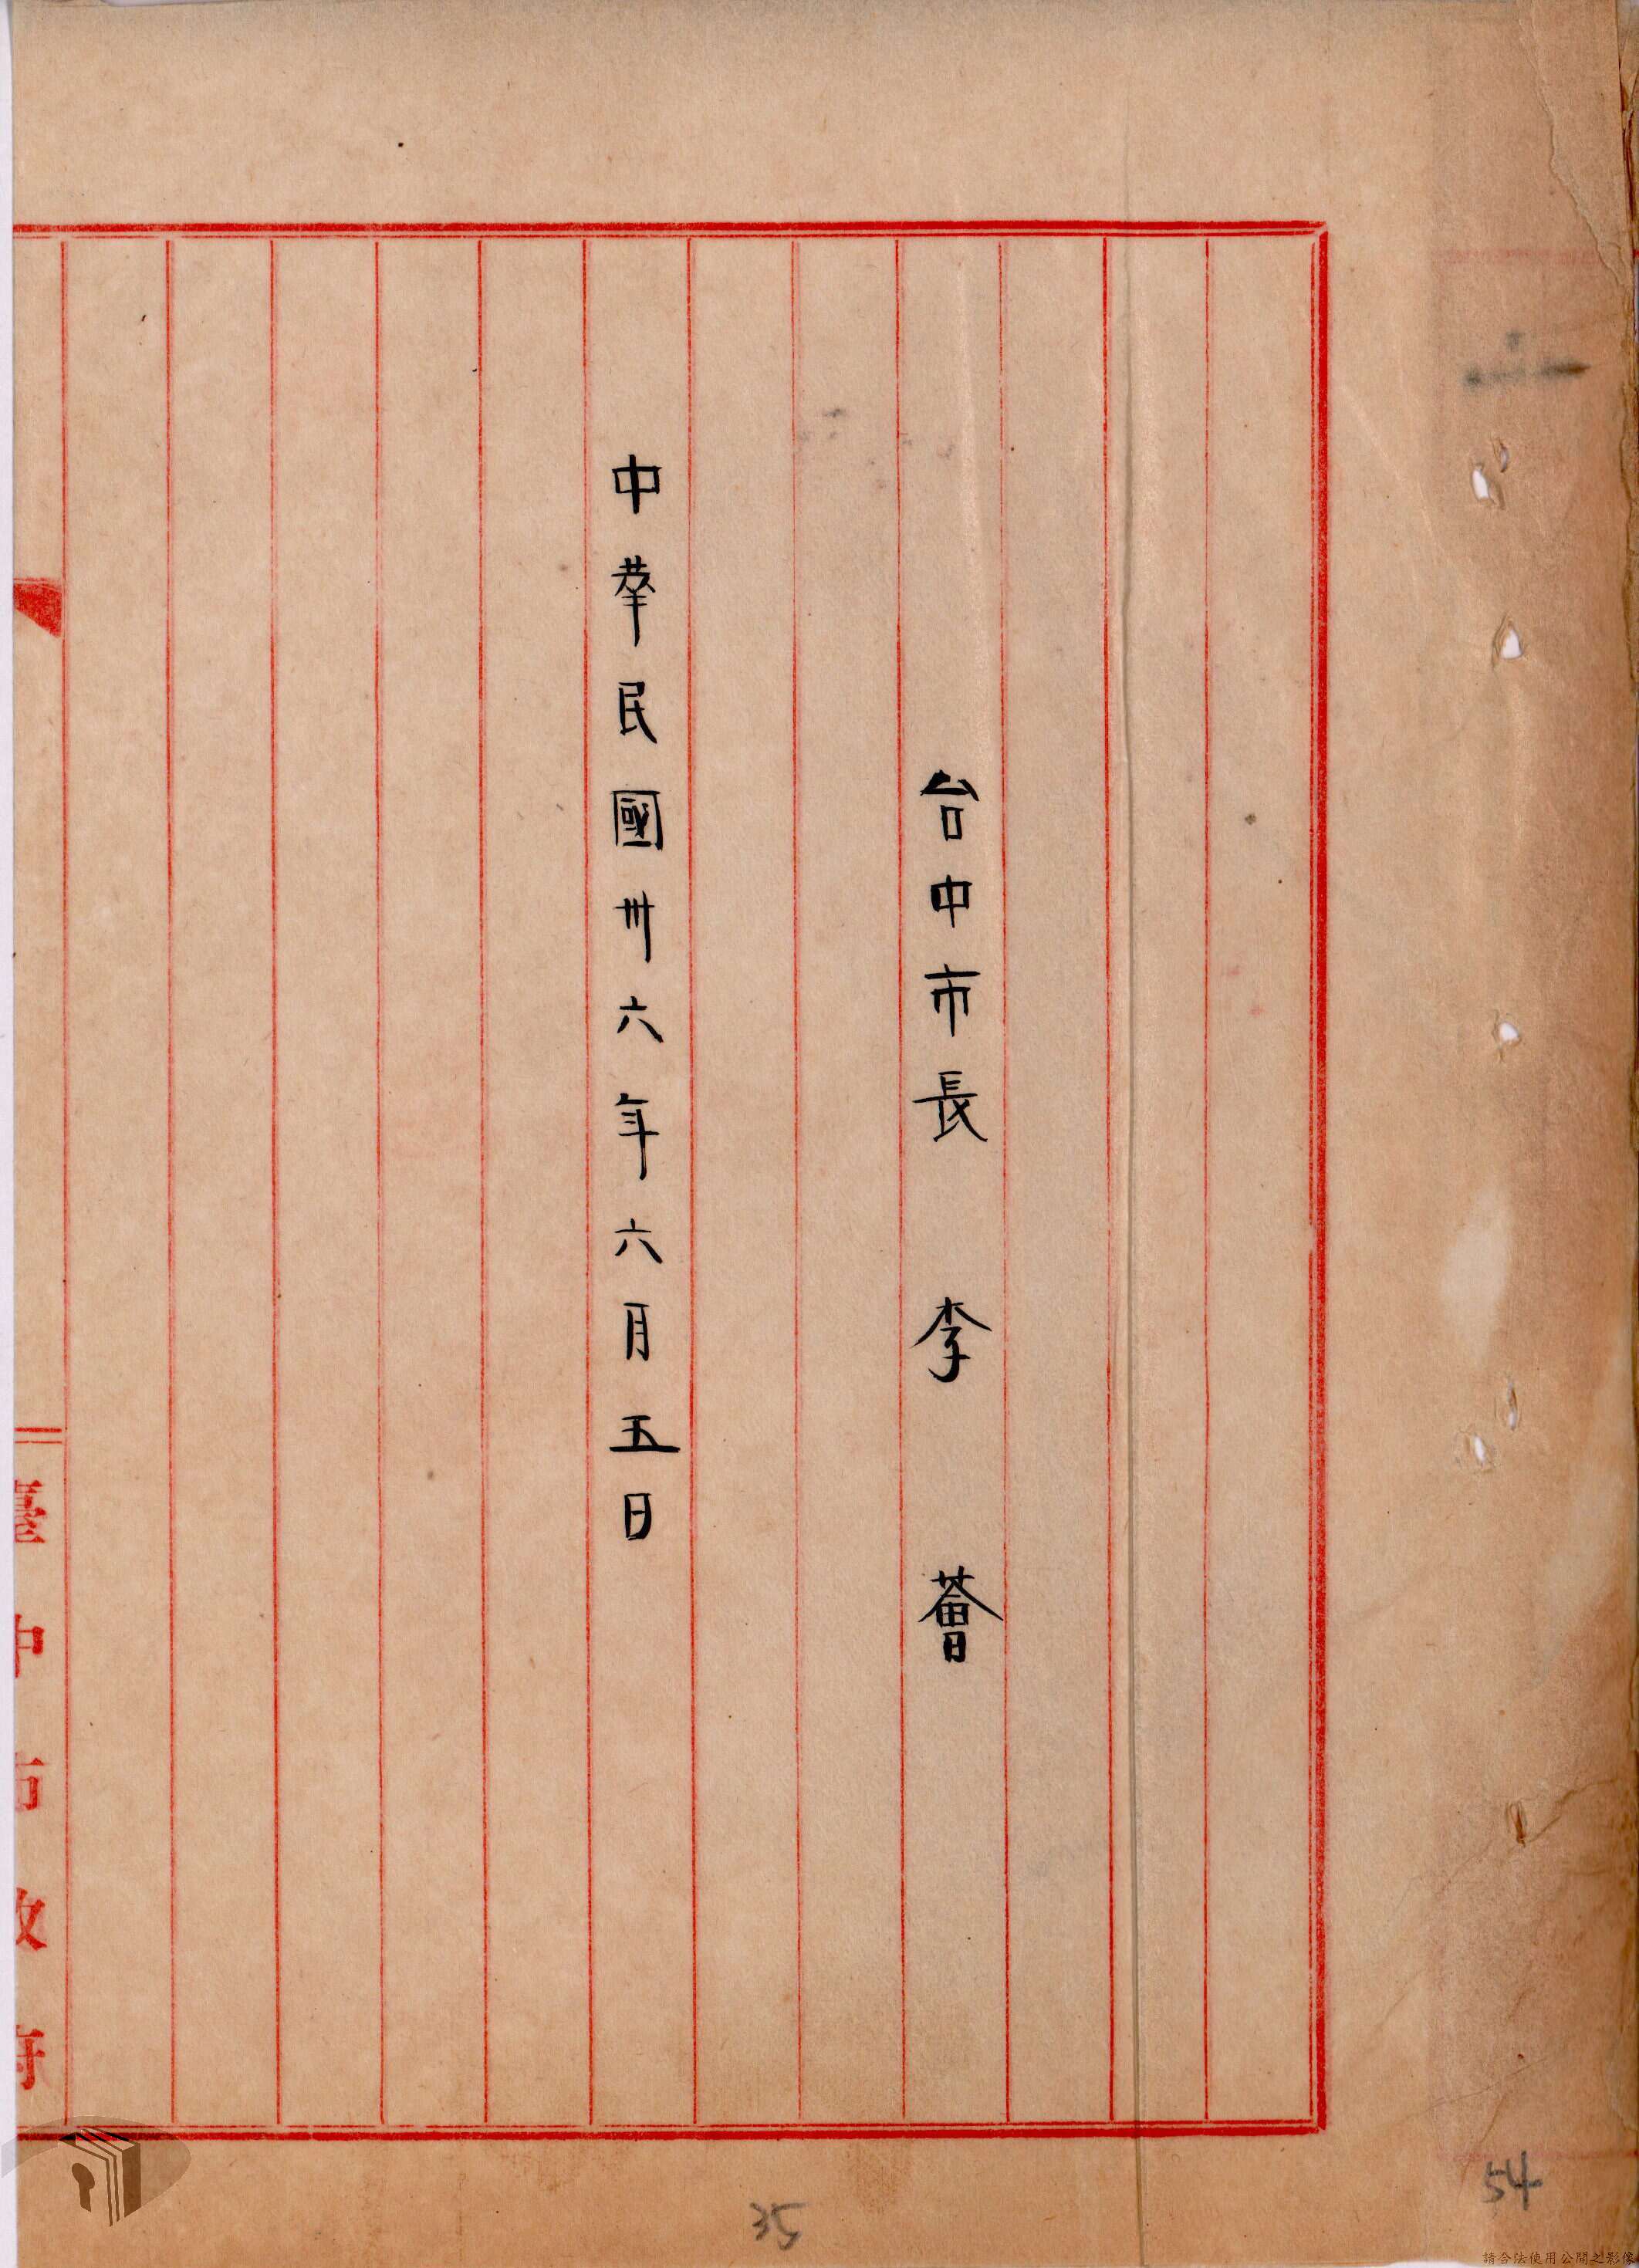 台中市長 李 薈
中華民國卅六年六月五日
臺中市政府
35
54
請合法使用公開之影像